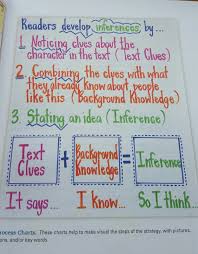 Readers develop inferences by...
1. Noticing clues about the
character in the text (Text Clues)
2. Combining the clues with what
they already know about people
like this (Background Knowledge)
3. Stating an idea (Inference)
Text Clues + Background Knowledge = Inference
It says... I know... So I think...
rocess Charts: These charts help to make visual the steps of the strategy, with pictures,
ons, and/or key words.